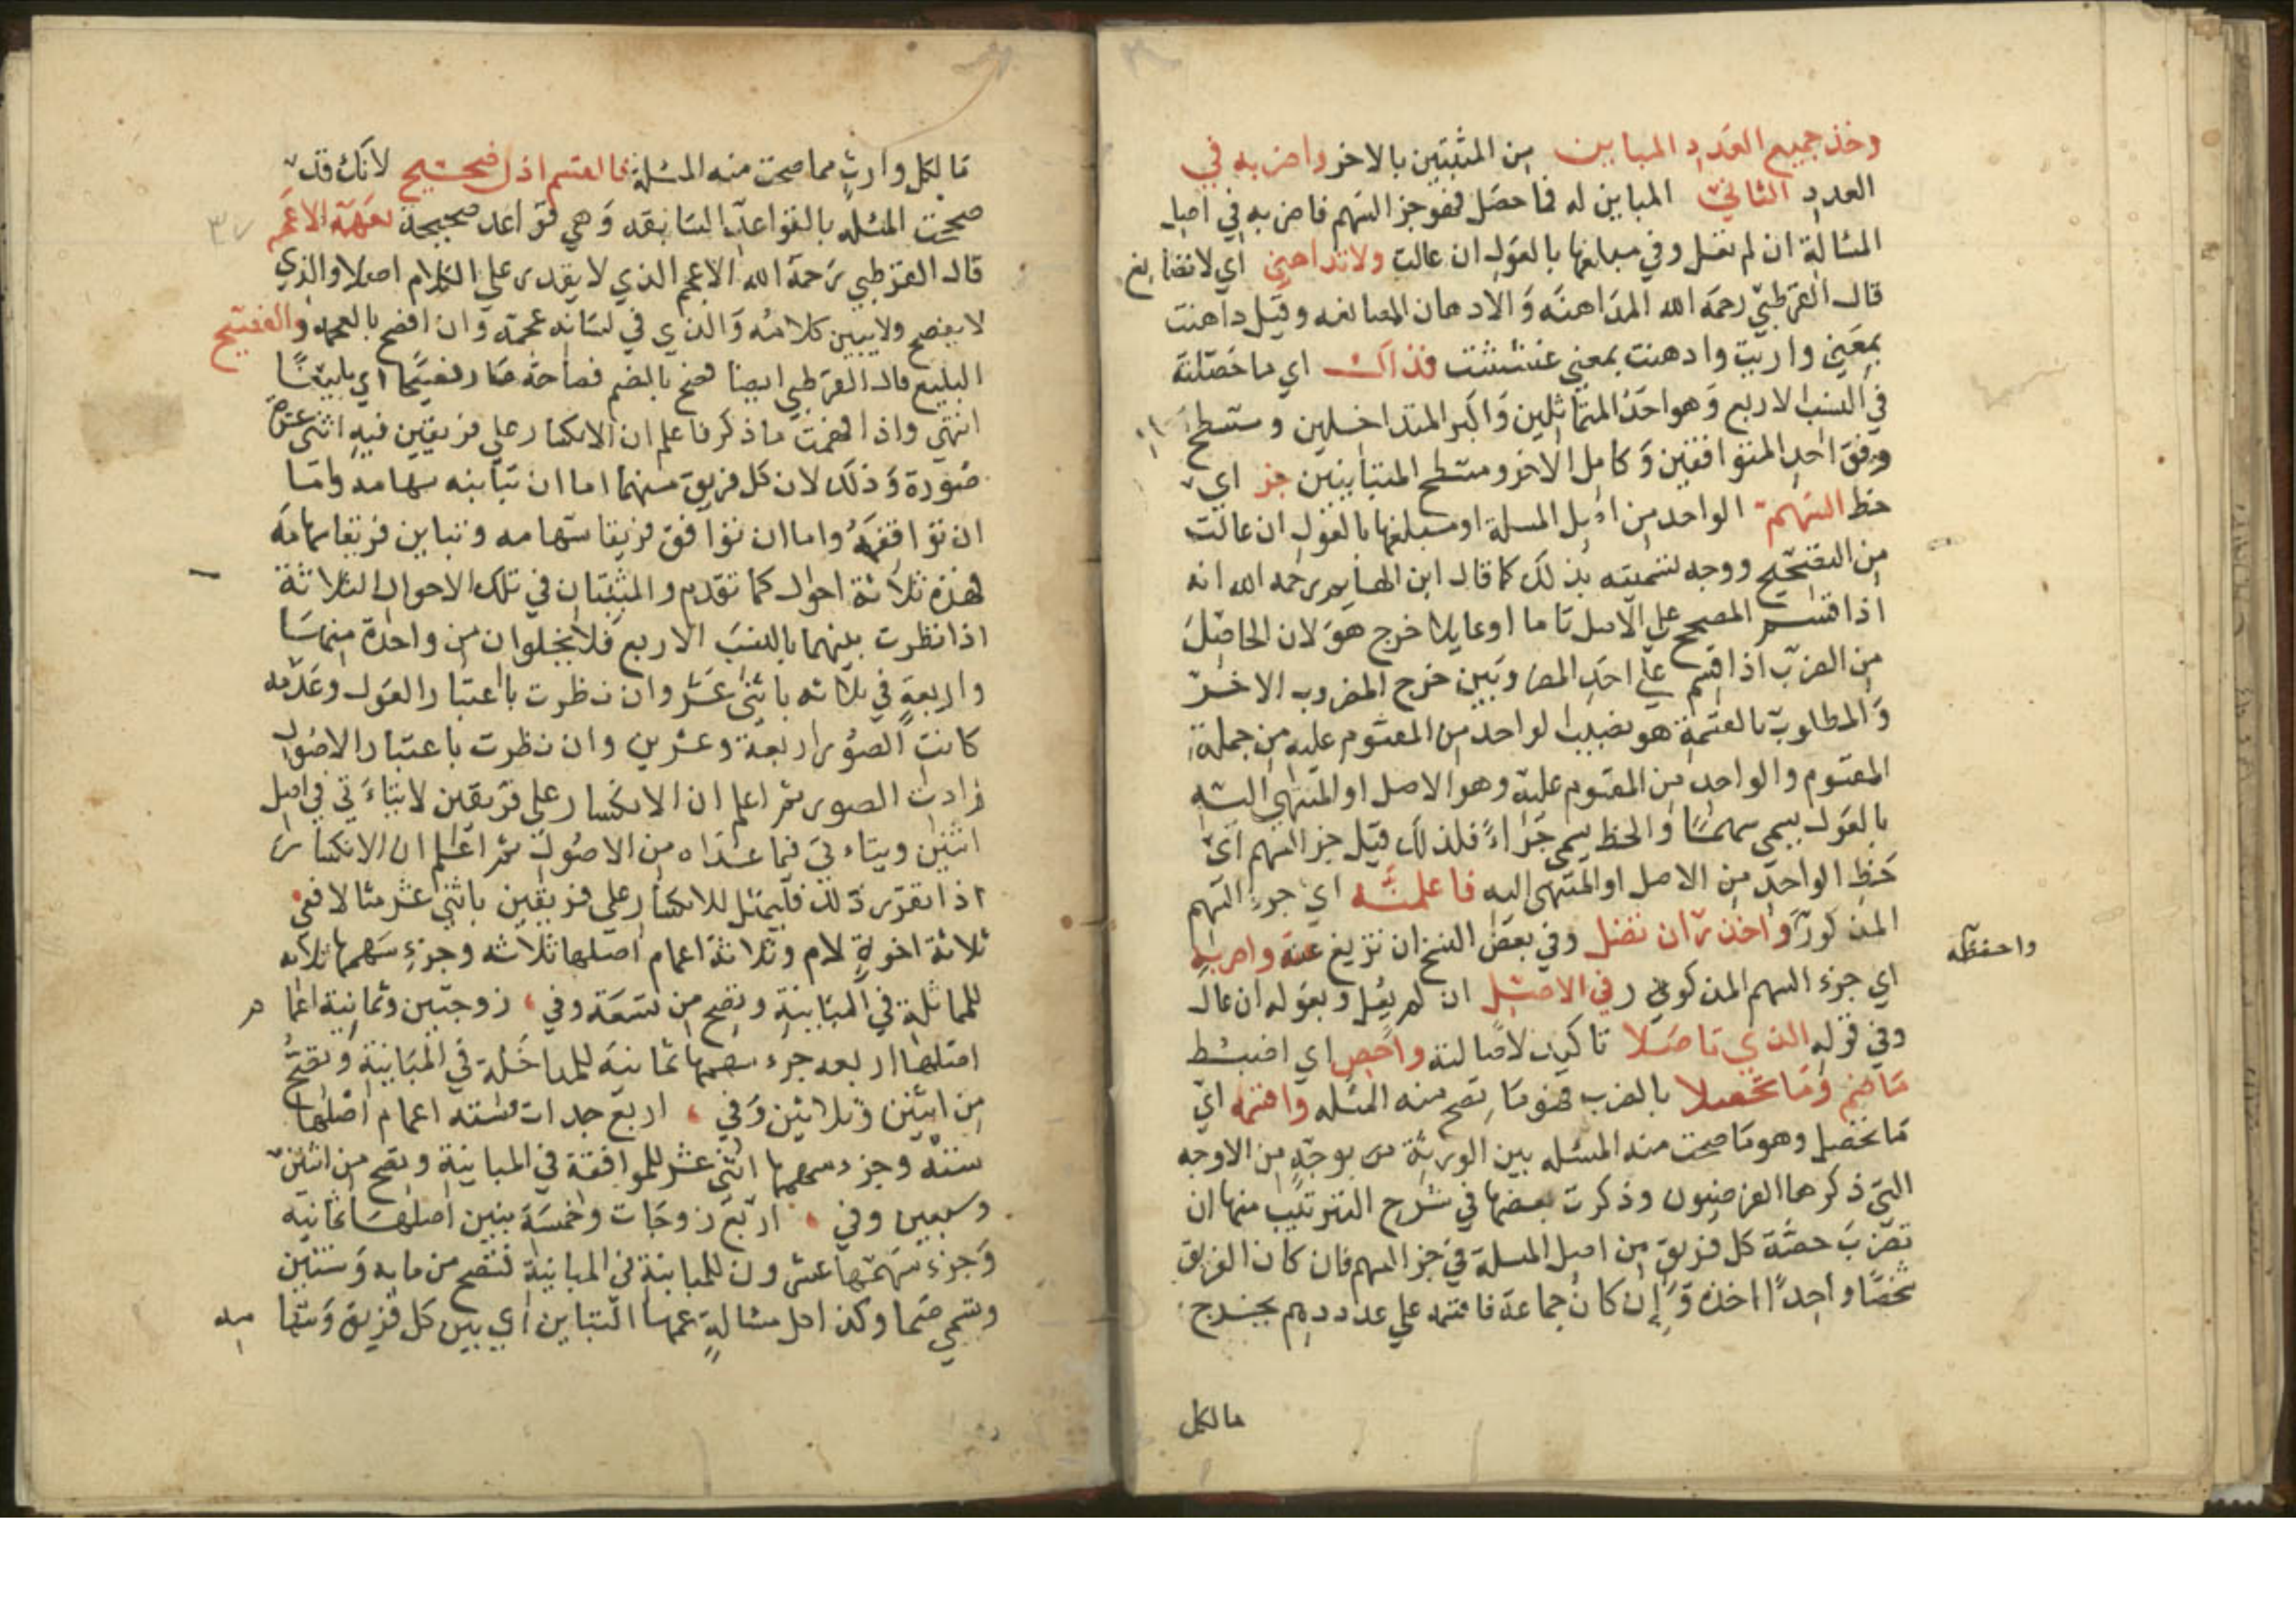 وخذ جميع العدد المباين من المثبتين بالاخر واضرب به في
العدد الثاني المباين له فما حصل فهو جز السهم فاضربه في اصل
المسالة ان لم تعل وفي مبلغها بالعول ان عالت ولا تداهن اي لا تصانع
قال القرطبي رحمه الله المداهنه والادهان المصانعه وقيل داهنت
بمعني واريت وادهنت بمعني غششت فذاك اي ما حصلته
في النسب الاربع وهو احد المتماثلين واكبر المتداخلين ومسطح
وفق احد المتوافقين وكامل الاخر ومسطح المتباينين جز اي
حظ السهم الواحد من اصل المسلة او مبلغها بالعول ان عالت
من التصحيح ووجه تسميته بذلك كما قال ابن الهايم رحمه الله انه
اذا قسم المصحح علي الاصل تاما او عايلا خرج هو لان الحاصل
من الضرب اذا قسم علي احد المضروبين خرج المضروب الاخر
والمطلوب بالقسمة هو نصيب الواحد من المقسوم عليه من جملة
المقسوم والواحد من المقسوم عليه وهو الاصل او المنتهي اليه
بالعول يسمي سهما والحظ يسمي جزاء فلذلك قيل جز السهم اي
حظ الواحد من الاصل او المنتهي اليه فاعلمنه اي جزء السهم
المذكور واحذر ان تضل وفي بعض النسخ ان تزيغ عنه واضربه
واحفظه
اي جزء السهم المذكور في الاصل ان لم يعل وبعوله ان عال
وفي قوله الذي تاصلا تاكيد لاصالته واحص اي اضبط
ما ضم وما تحصلا بالضرب فهو ما تصح منه المسله واقسمه اي
ما تحصل وهو ما صحت منه المسله بين الورثة بوجه من الاوجه
التي ذكرها الفرضيون وذكرت بعضها في شرح الترتيب منها ان
تضرب حصة كل فريق من اصل المسلة في جز السهم فان كان الفريق
شخصا واحدا اخذه وإن كان جماعة فاقسمه علي عددهم يخرج
مالكل
ما لكل وارث مما صحت منه المسئلة فالقسم اذا صحيح لانك قد
صححت المسئله بالقواعد السابقه وهي قواعد صحيحة يعرفه الاعجم
٣٧
قال القرطبي رحمه الله الاعجم الذي لا يقدر علي الكلام اصلا والذي
لا يفصح ولا يبين كلامه والذي في لسانه عجمة وان افصح بالعجمه والفصيح
البليغ قال القرطبي ايضا فصح بالضم فصاحة صار فصيحا اي بليغا
انتهي واذا فهمت ما ذكر فاعلم ان الانكسار علي فريقين فيه اثني عشرة
صورة وذلك لان كل فريق منهما اما ان تباينه سهامه واما
ان توافقه واما ان توافق فريقا سهامه وتباين فريقا سهامه
فهذه ثلاثة احوال كما تقدم والمثبتان في تلك الاحوال الثلاثة
اذا نظرت بينهما بالنسب الاربع فلا يخلوان من واحدة منها
واربعة في ثلاثه باثني عشر وان نظرت باعتبار العول وعدمه
كانت الصور اربعة وعشرين وان نظرت باعتبار الاصول
زادت الصور ثم اعلم ان الانكسار علي فريقين لا يتاءتي في اصل
اثنين ويتاءتي فيما عداه من الاصول ثم اعلم ان الانكسار
اذا تقرر ذلك فليمثل للانكسار علي فريقين باثني عشر مثالا ففي
ثلاثة اخوة لام وثلاثة اعمام اصلها ثلاثه وجزء سهمها ثلاثه
للماثلة في المباينة وتصح من تسعة وفي زوجتين وثمانية اعما
م
اصلها اربعه جزء سهمها ثمانيه للمداخلة في المباينة وتصح
من اثنين وثلاثين وفي اربع جدات وسته اعمام اصلها
ستة وجزء سهمها اثني عشر للموافقة في المباينة وتصح من اثنين
وسبعين وفي اربع زوجات وخمسة بنين اصلها ثمانيه
وجزء سهمها عشرون للمباينة في المباينة فتصح من مايه وستين
وتسمي صما وكذا كل مسالة عمها التباين اي بين كل فريق وسها
مه